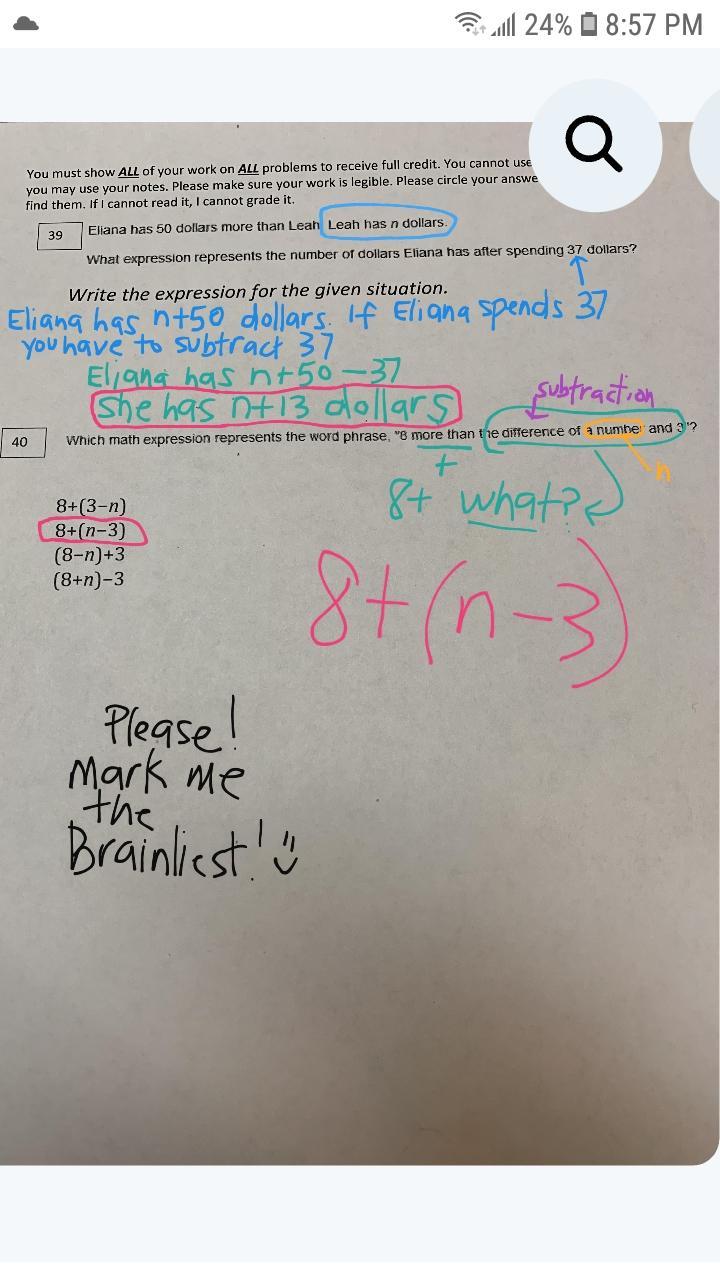 24% 8:57 PM
You must show ALL of your work on ALL problems to receive full credit. You cannot use
you may use your notes. Please make sure your work is legible. Please circle your answe
find them. If I cannot read it, I cannot grade it.
39 Eliana has 50 dollars more than Leah Leah has n dollars.
What expression represents the number of dollars Eliana has after spending 37 dollars?
Write the expression for the given situation.
Eliana has n+50 dollars. If Eliana spends 37
you have to subtract 37
Eliana has n+50-37
She has n+13 dollars
subtraction
40 Which math expression represents the word phrase, "8 more than the difference of a number and 3"?
+ n
8+ what?
8+(3−n)
8+(n−3)
(8−n)+3
(8+n)−3
8+(n-3)
Please!
Mark me
the
Brainliest!